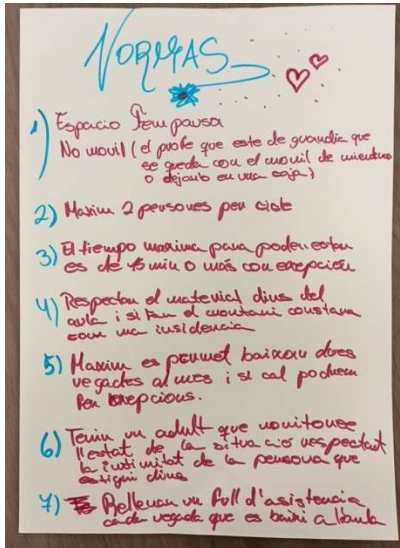 NORMAS
1) Espacio Fem pausa
No movil (el profe que este de guardia que
se queda con el movil de mientras
o dejarlo en una caja)
2) Maxim 2 persones per cicle
3) El tiempo maximo para poder estar
es de 15 min o más con exepción
4) Respectar el material dins del
aula i si fan el constara
com una insidencia
5) Maxim es permet baixar dues
vegades al mes i si cal podrem
fer exepcions.
6) Tenir un adult que monitoree
l'estat de la situació respectant
la intimitat de la persona que
estigui dins
7) Rellenar un full d'asistencia
cada vegada que es baixi a l'aula